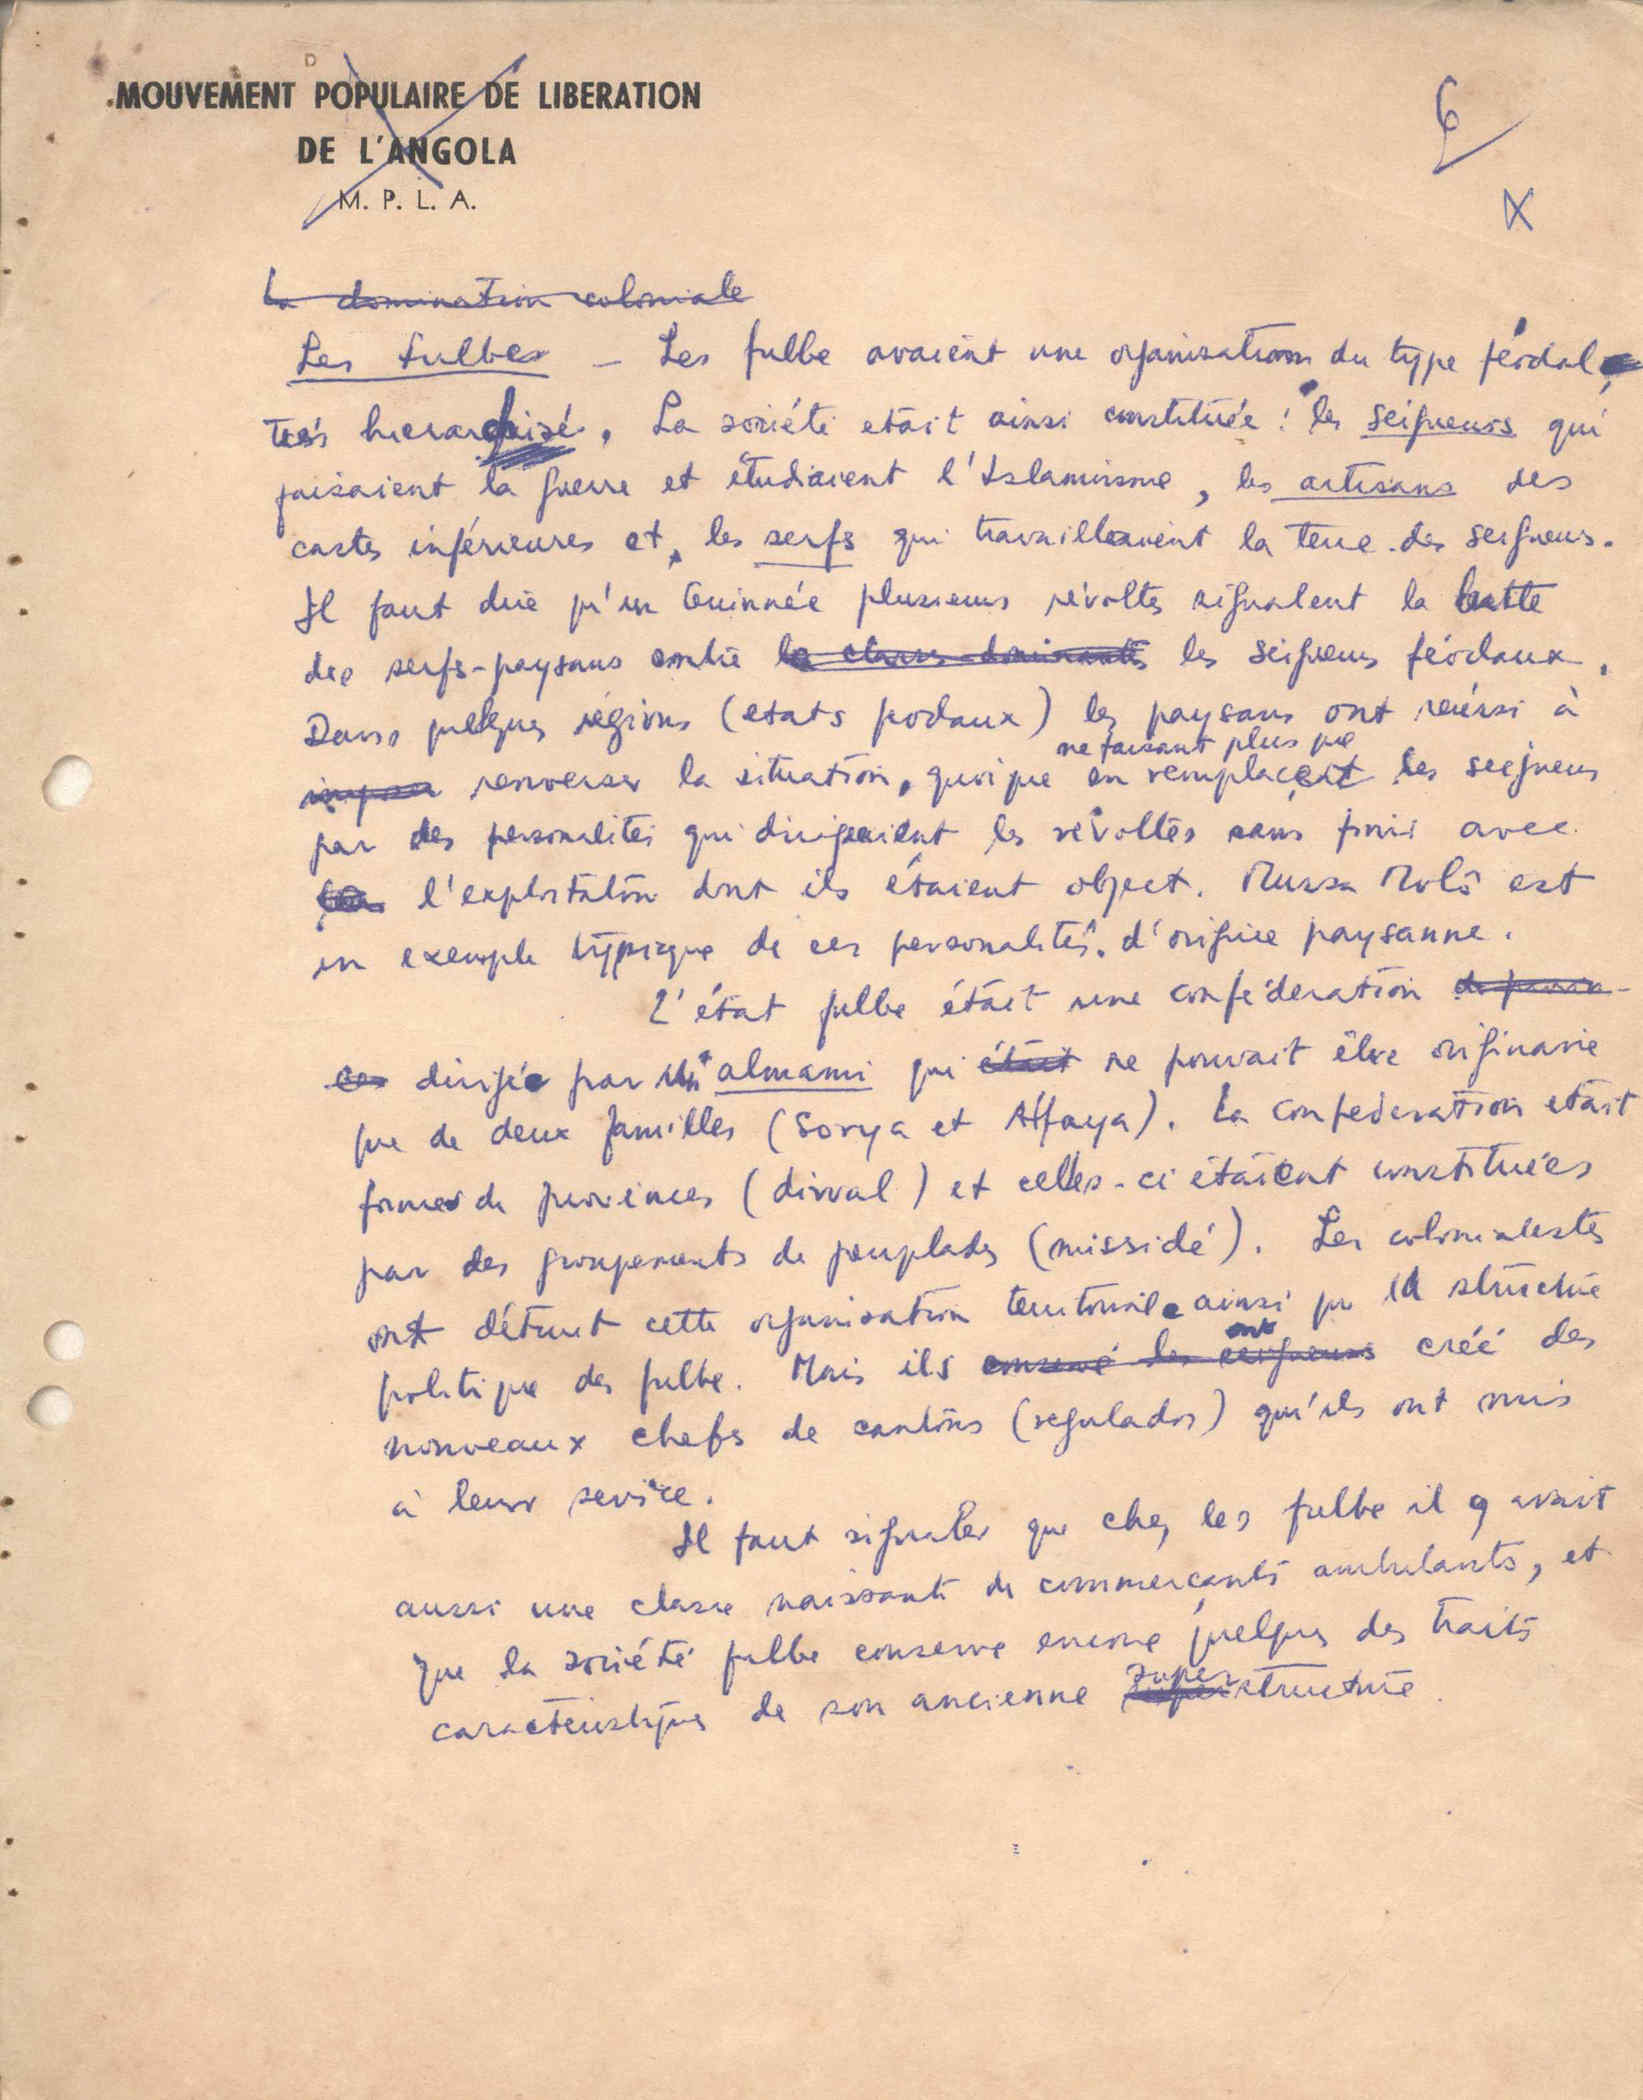 MOUVEMENT POPULAIRE DE LIBERATION
DE L'ANGOLA
M. P. L. A.
6
X
La domination coloniale
Les fulbes — Les fulbe avaient une organisation du type féodal,
très hierarchisé. La société etait ainsi constituée : les seigneurs qui
faisaient la guerre et étudiaient l'Islamisme, les artisans des
castes inférieures et, les serfs qui travaillaient la terre des seigneurs.
Il faut dire qu'en Guinnée plusieurs révoltes signalent la lutte
des serfs-paysans contre la classe dominante les seigneurs féodaux.
Dans quelques régions (etats feodaux) les paysans ont reuéssi à
ne faisant plus que
renverser la situation, quoique en remplacent les seigneurs
par des personalités qui dirigeaient les révoltes sans finir avec
l'exploitation dont ils étaient object. Mussa Molô est
un exemple typique de ces personalités d'origine paysanne.
L'état fulbe était une conféderation de provin-
ces dirigée par un almami qui était ne pouvait être originarie
que de deux familles (Sorya et Alfaya). La confederation etait
formée de provinces (diwal) et celles-ci étaient constituées
par des groupements de peuplades (missidé). Les colonialistes
ont détruit cette organisation territoriale ainsi que la structure
ont
politique des fulbe. Mais ils conservé les seigneurs créé des
nouveaux chefs de cantons (regulados) qu'ils ont mis
à leur service.
Il faut signaler que chez les fulbe il y avait
aussi une classe naissante de commerçants ambulants, et
que la société fulbe conserve encore quelques des traits
super
caractéristiques de son ancienne structure.